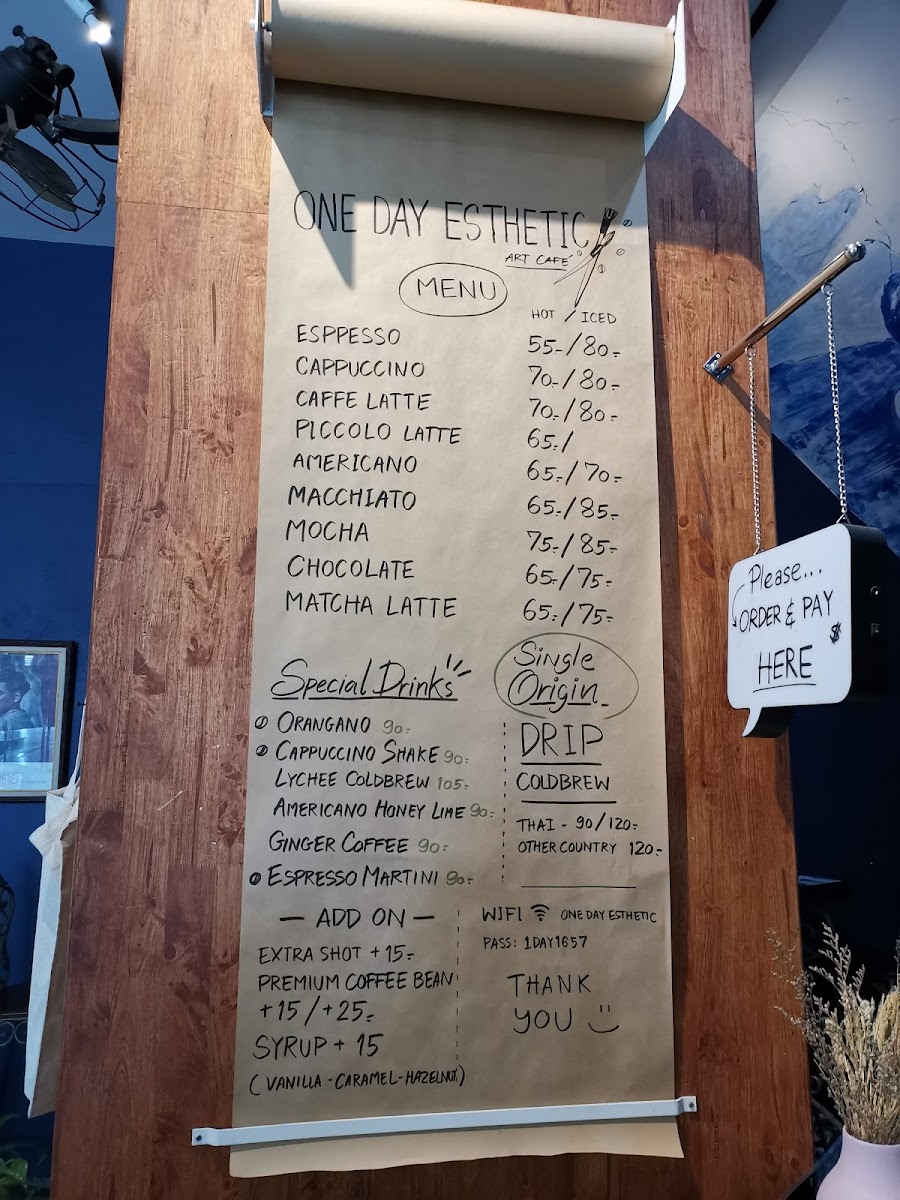 ONE DAY ESTHETIC
ART CAFÉ
MENU
HOT / ICED
ESPPESSO 55.-/80.-
CAPPUCCINO 70.-/80.-
CAFFE LATTE 70.-/80.-
PICCOLO LATTE 65./
AMERICANO 65.-/70.-
MACCHIATO 65/85.-
MOCHA 75.-/85.-
CHOCOLATE 65.-/75.-
MATCHA LATTE 65./75.-
Special Drinks
ORANGANO 90.-
CAPPUCCINO SHAKE 90.-
LYCHEE COLDBREW 105.-
AMERICANO HONEY LIME 90.-
GINGER COFFEE 90.-
ESPRESSO MARTINI 90.-
Single
Origin
DRIP
COLDBREW
THAI - 90/120.-
OTHER COUNTRY 120.-
— ADD ON —
EXTRA SHOT +15.-
PREMIUM COFFEE BEAN
+15/+25.-
SYRUP + 15
(VANILLA - CARAMEL - HAZELNUT)
WIFI ONE DAY ESTHETIC
PASS: 1DAY1657
THANK
YOU
Please...
ORDER & PAY
$
HERE